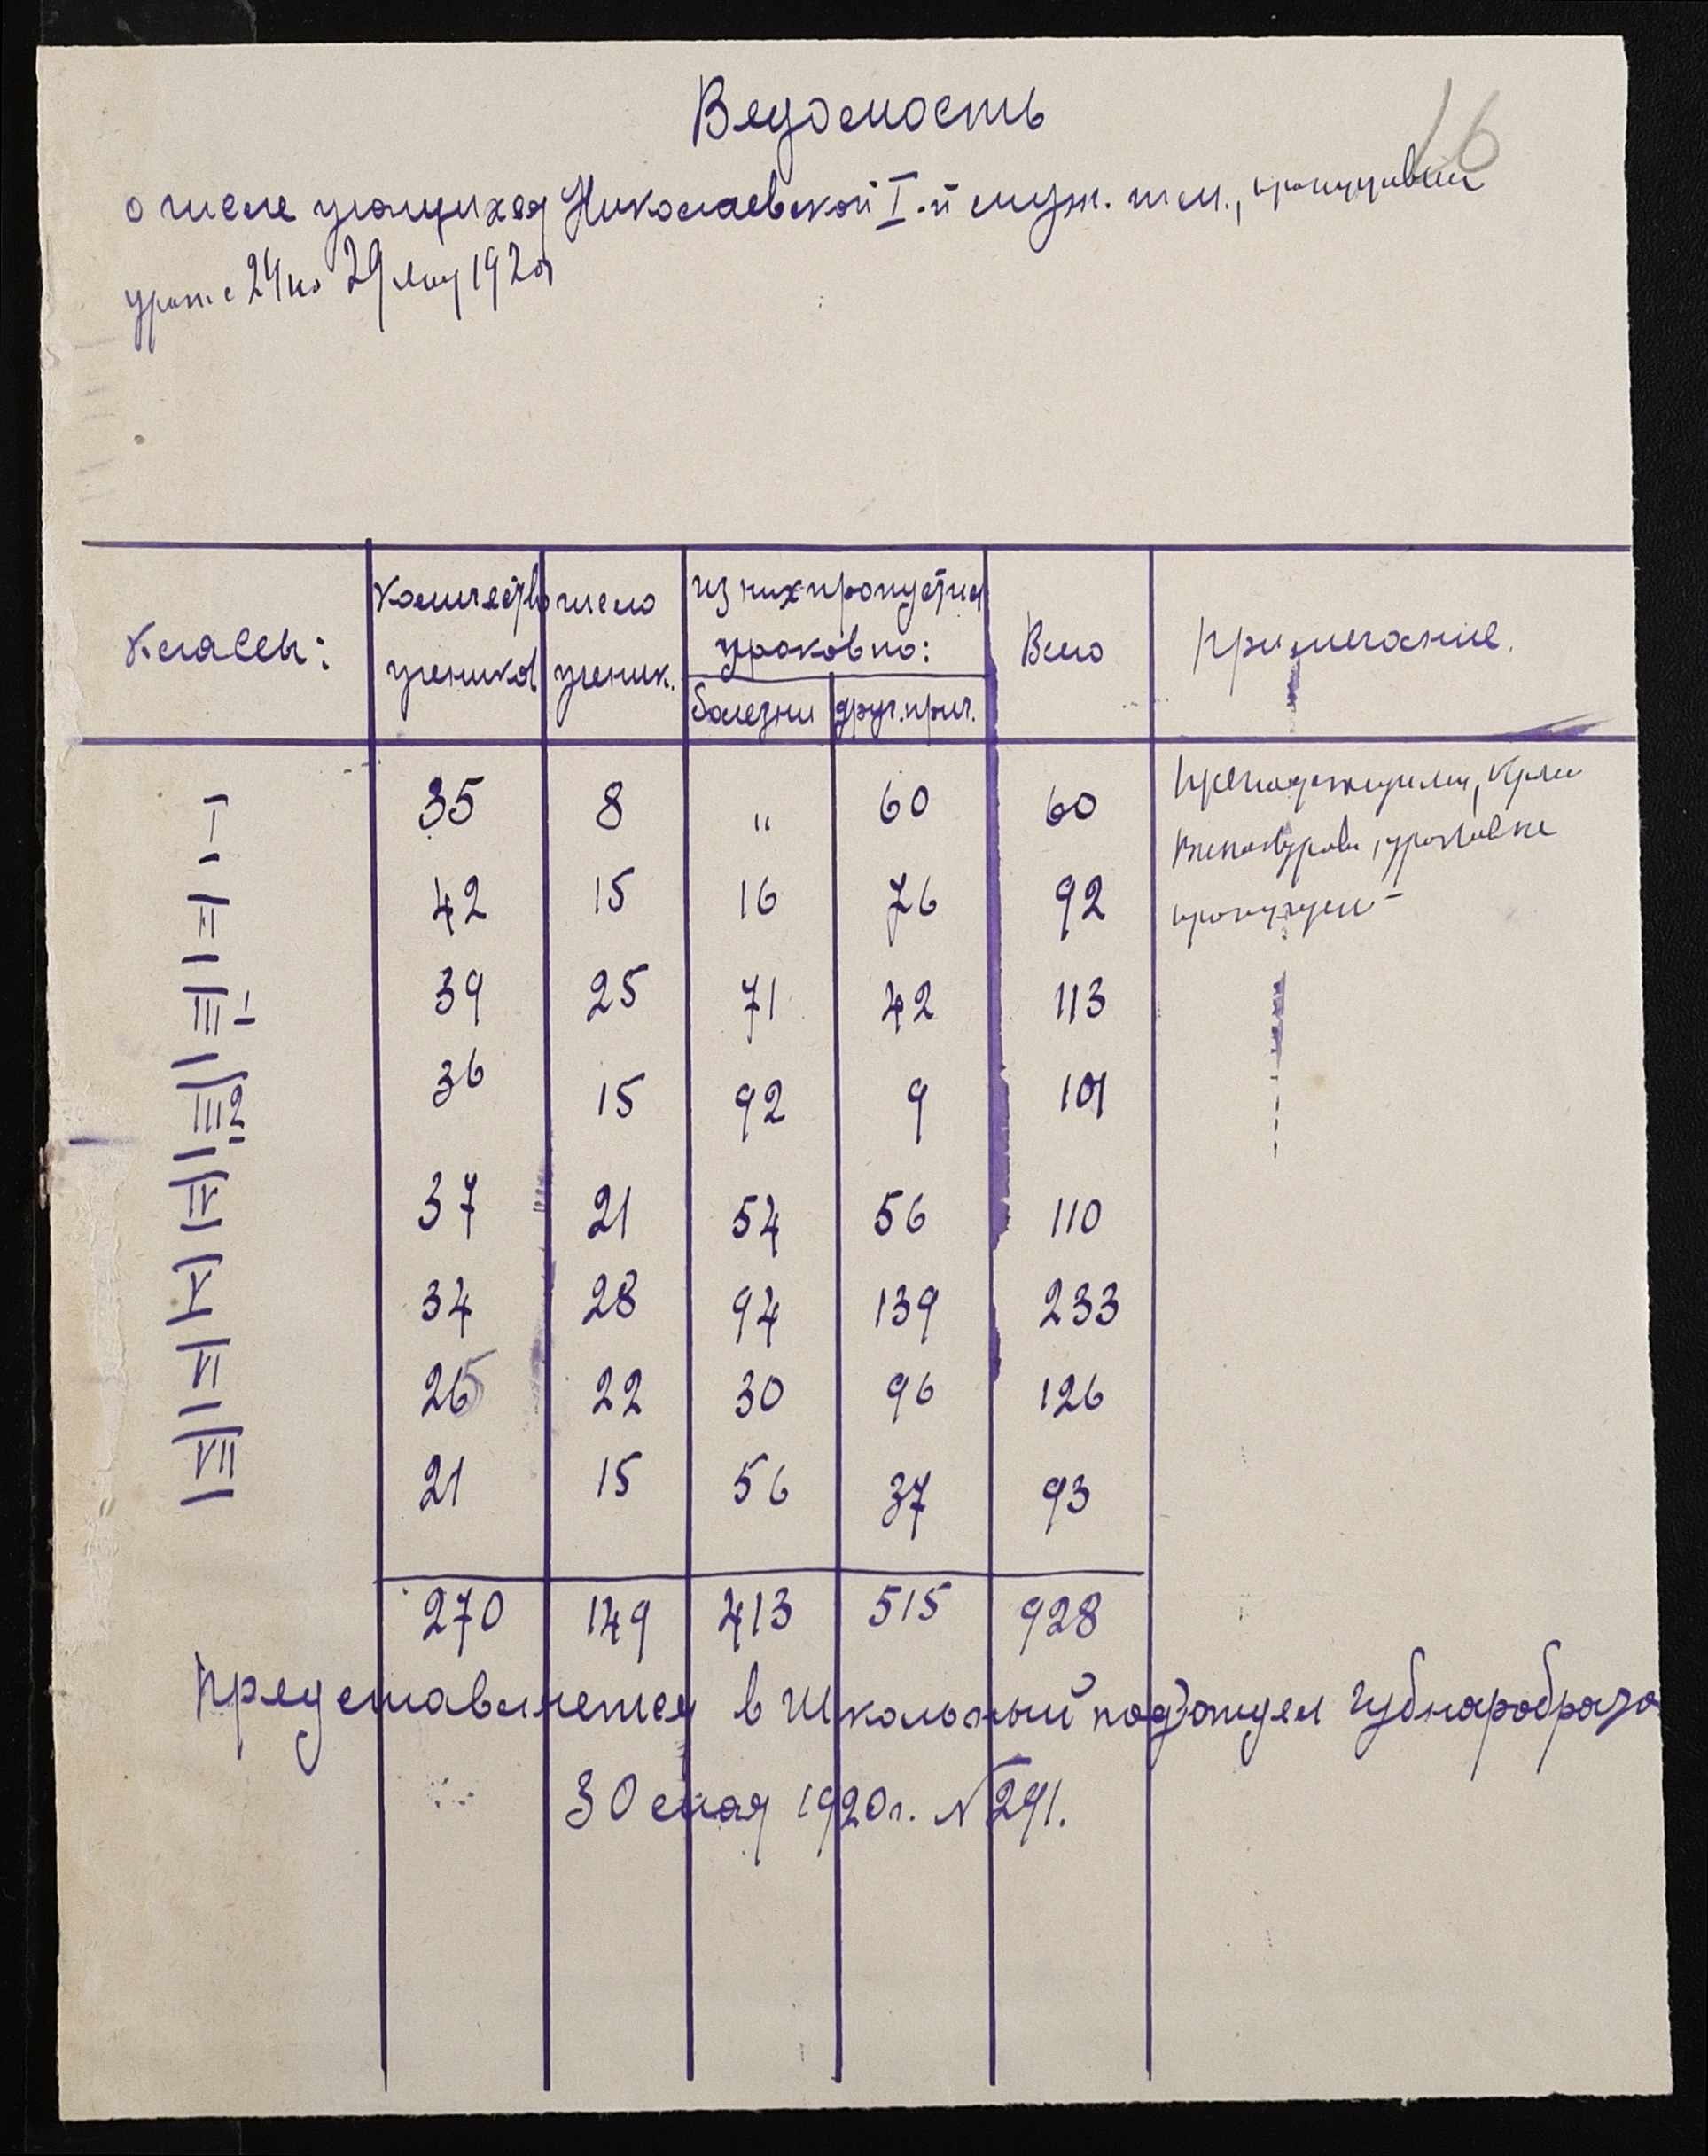 16
Ведомость
о числе учащихся Николаевской I-й муж. гим., пропустивш
урок. с 24 по 29 мая 1920
Классы: Количество учеников число ученик. из них пропустил уроков по: болезни друг. прич. Всего Примечание.
I 35 8 " 60 60
II 42 15 16 76 92
III 1 39 25 71 42 113
III 2 36 15 92 9 101
IV 37 21 54 56 110
V 34 28 94 139 233
VI 26 22 30 96 126
VII 21 15 56 37 93
270 149 413 515 928
Преподавателями, кроме
Винокурова, уроков не
пропущен
Представляется в Школьный подотдел Губнаробраза
30 мая 1920 г. № 291.